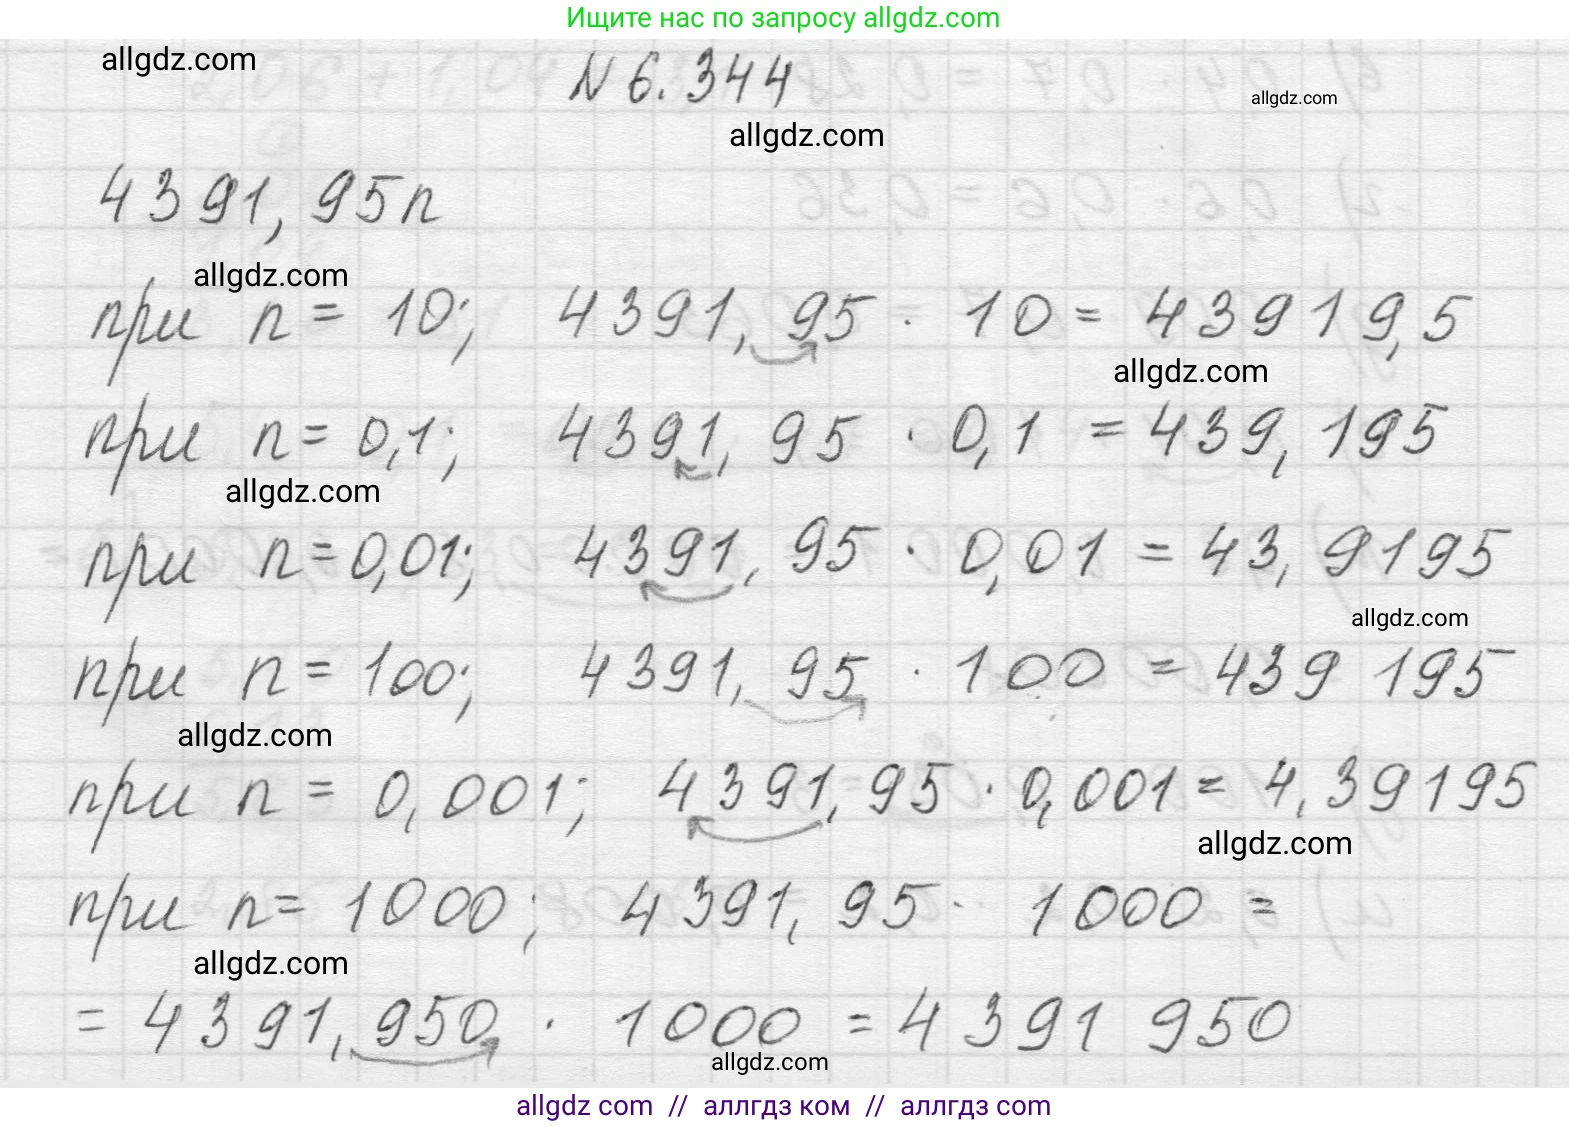 Ищите нас по запросу allgdz.com
allgdz.com
N 6.344
allgdz.com
allgdz.com
4391,95n
allgdz.com
при n = 10; 4391,95 · 10 = 43919,5
allgdz.com
при n = 0,1; 4391,95 · 0,1 = 439,195
allgdz.com
при n = 0,01; 4391,95 · 0,01 = 43,9195
allgdz.com
при n = 100; 4391,95 · 100 = 439 195
allgdz.com
при n = 0,001; 4391,95 · 0,001 = 4,39195
allgdz.com
при n = 1000; 4391,95 · 1000 =
allgdz.com
= 4391,950 · 1000 = 4391 950
allgdz.com
allgdz com // аллгдз ком // аллгдз com